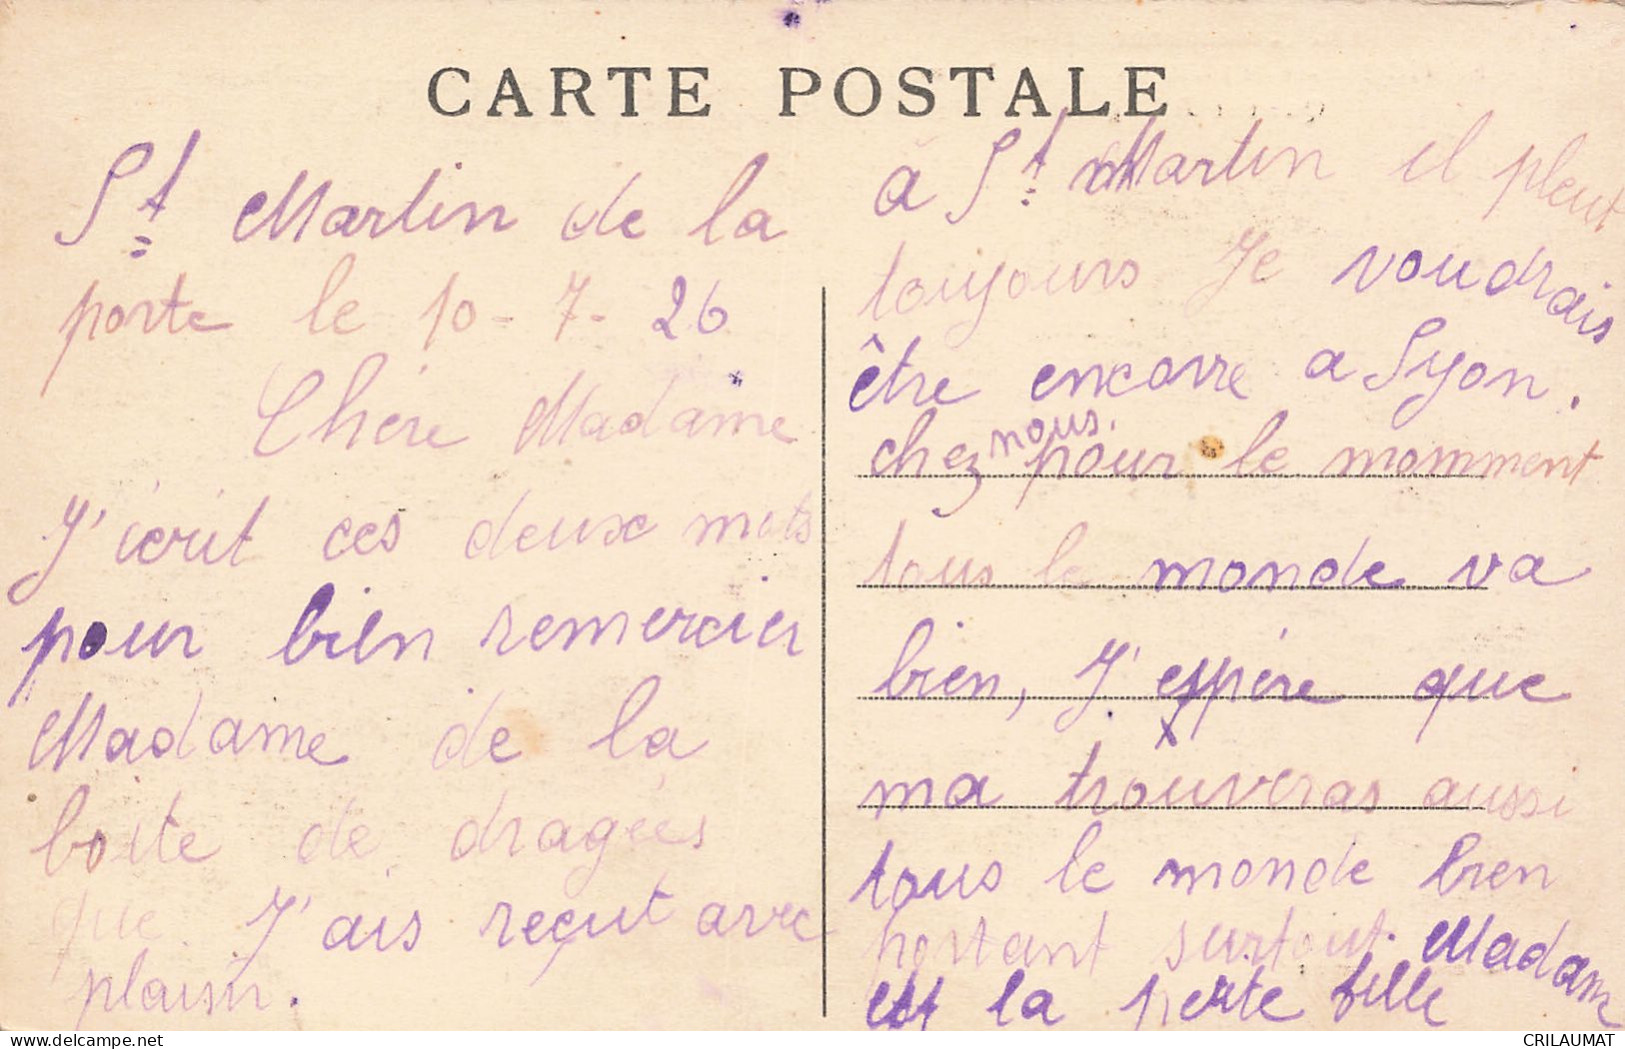 CARTE POSTALE
St Martin de la
porte le 10-7-26
Chère Madame
J'icrit ces deux mots
pour bien remercier
Madame de la
boite de dragées
que J'ais reçut avec
plaisir.
à St Martin il pleut
toujours Je voudrais
être encorre a Lyon.
chez nous. pour le momment
tous le monde va
bien, J'espère que
ma trouveras aussi
tous le monde bien
portant surtout. Madame
et la petite fille
CRILAUMAT